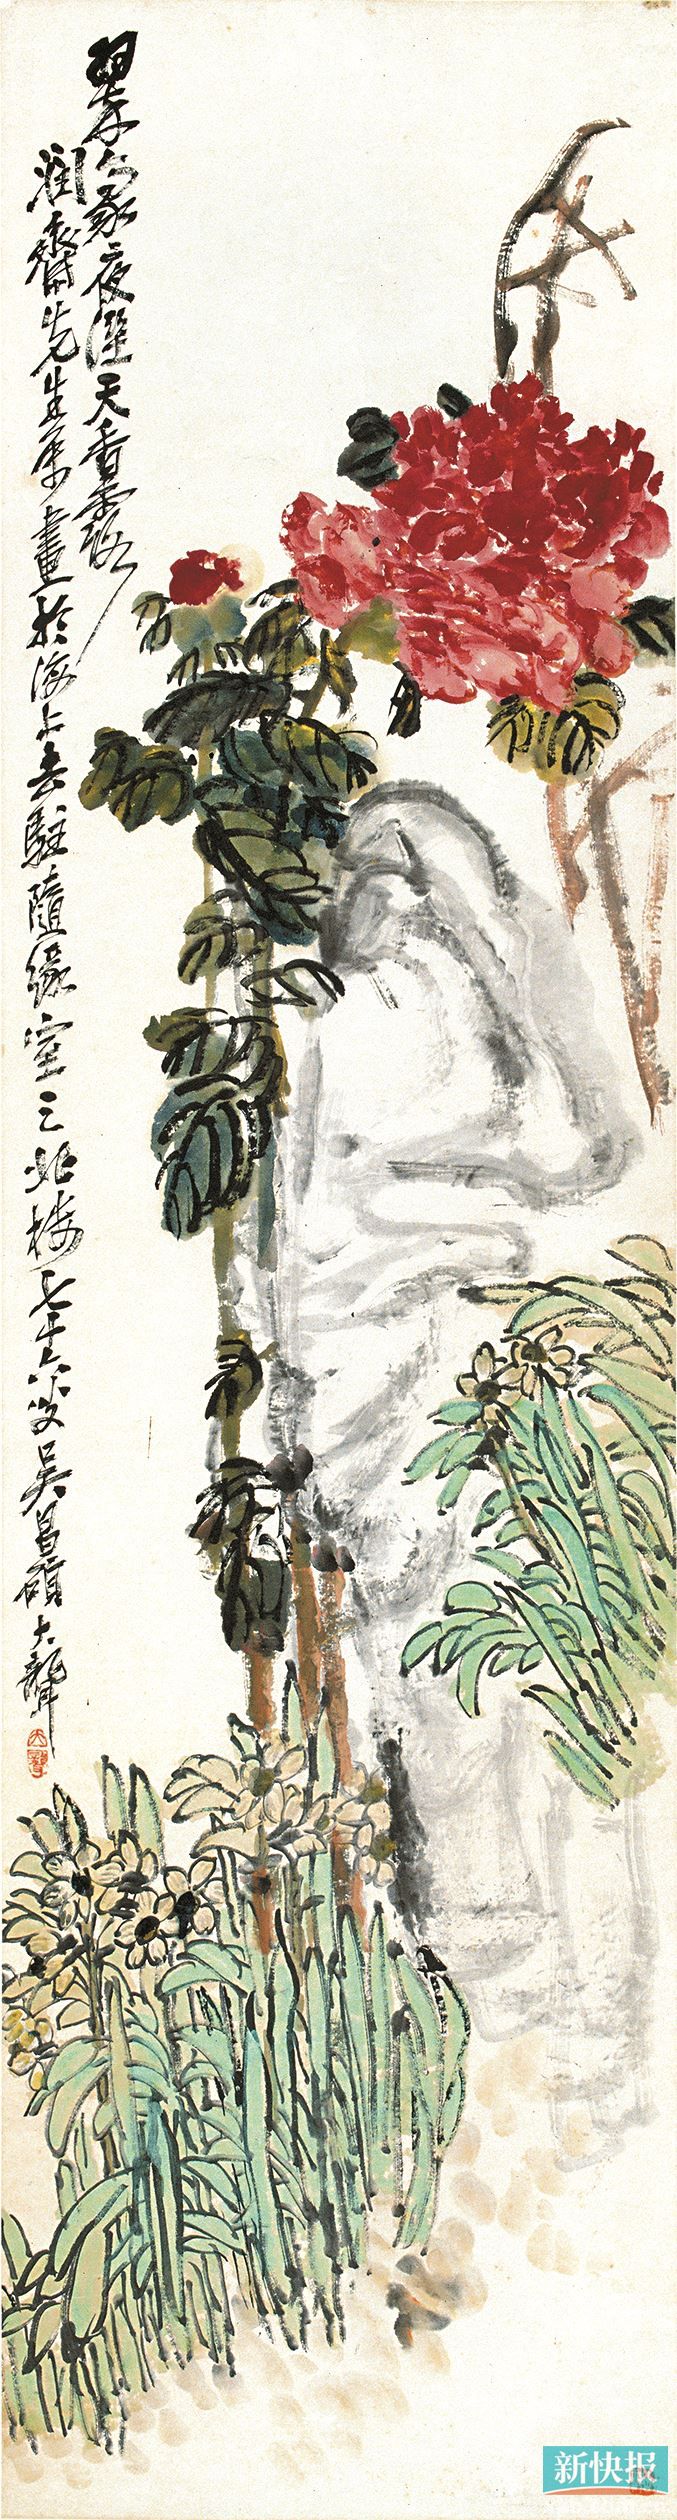 翠夜溼天香露
潤齋先生屬畫於海上去駐隨緣室之北楼七十六岁吳昌碩大聾
大聾
新快报